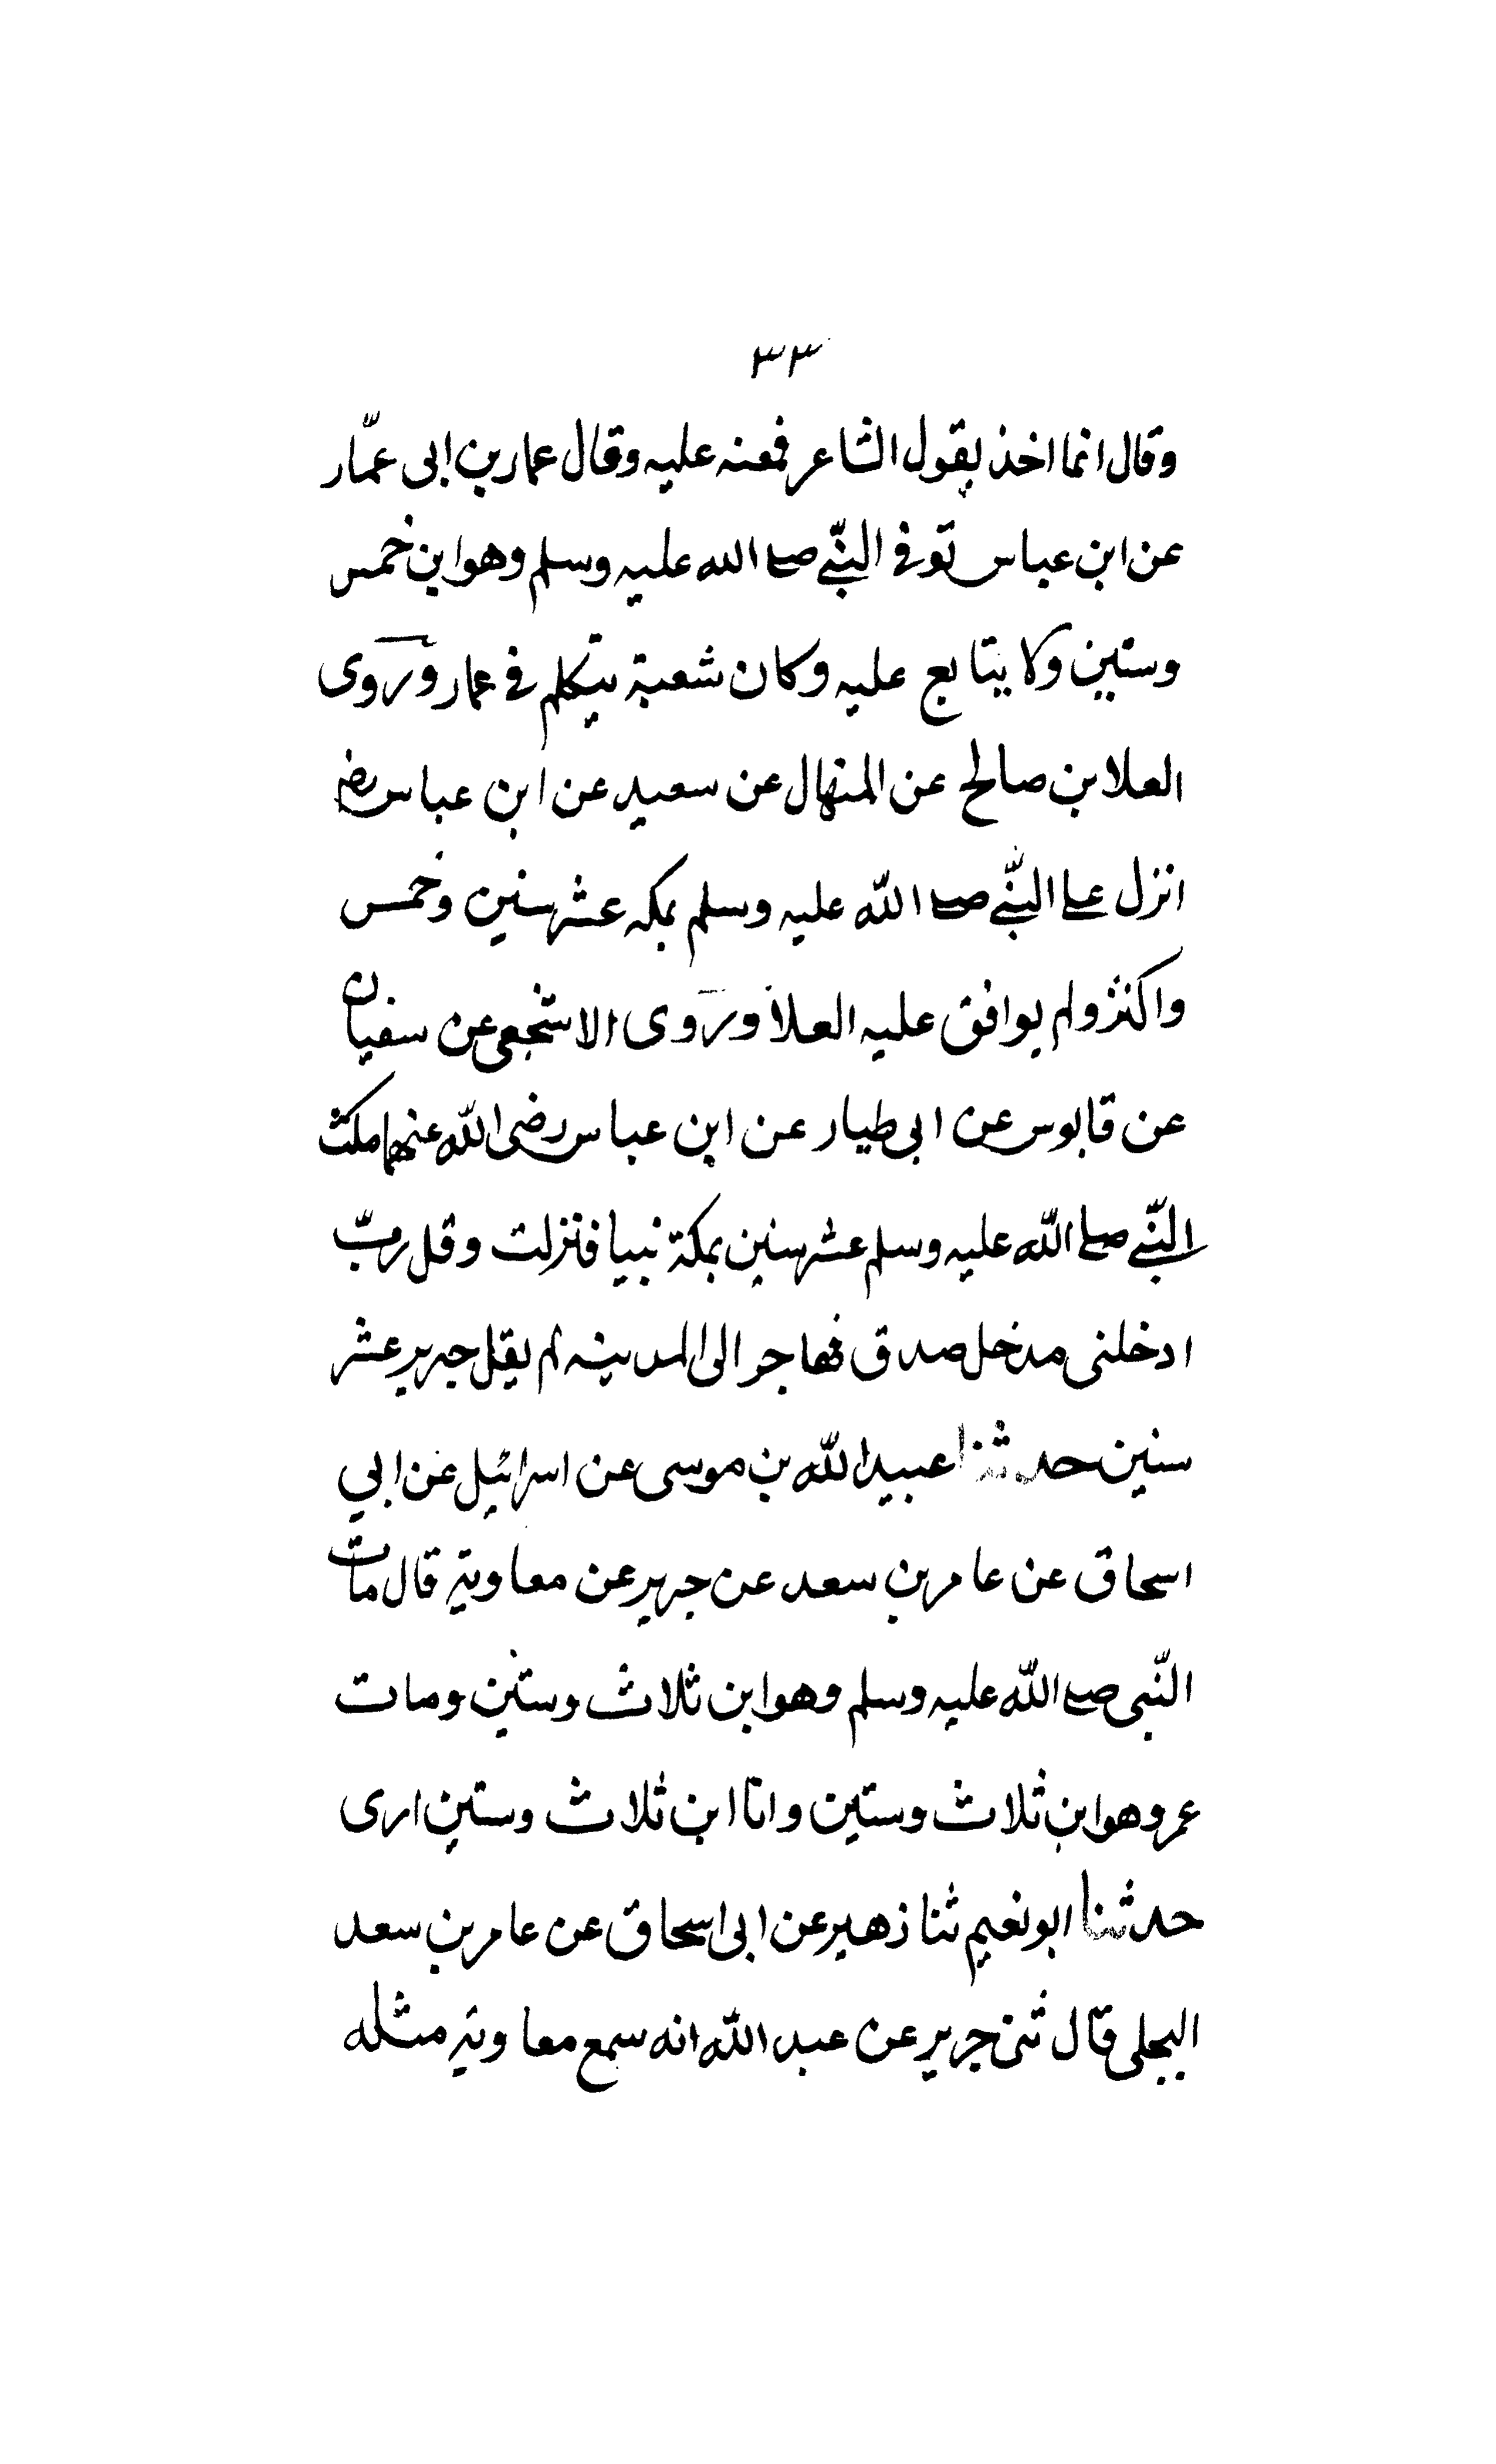 ٣٣
وقال انما اخذ بقول الشاعر فمعنه عليه وقال عمار بن ابى عمّار
عن ابن عباس توفى النبّي صلى الله عليه وسلم وهو ابن خمس
وستين ولا يتابع عليه وكان شعبة يتكلم فى عمار وروى
العلا بن صالح عن المنهال عن سعيد عن ابن عباس رض
انزل على النبّي صلى الله عليه وسلم بمكه عشر سنين وخمس
واكثر ولم يوافق عليه العلا وروى الاشجعى عن سفيان
عن قابوس عن ابى طيار عن ابن عباس رضى الله عنهما مكث
النبّي صلى الله عليه وسلم عشر سنين بمكة نبيا فنزلت وقل ربّ
ادخلنى مدخل صدق فهاجر الى المدينه لم يقل جرير عشر
سنين حدثنا عبيد الله بن موسى عن اسرائيل عن ابي
اسحاق عن عامر بن سعد عن جرير عن معاوية قال مات
النّبى صلى الله عليه وسلم وهو ابن ثلاث وستين ومات
عمر وهو ابن ثلاث وستين وانا ابن ثلاث وستين ارى
حدثنا ابو نعيم ثنا زهير عن ابى اسحاق عن عامر بن سعد
البجلى قال ثنى جرير عن عبد الله انه سمع معاوية مثله